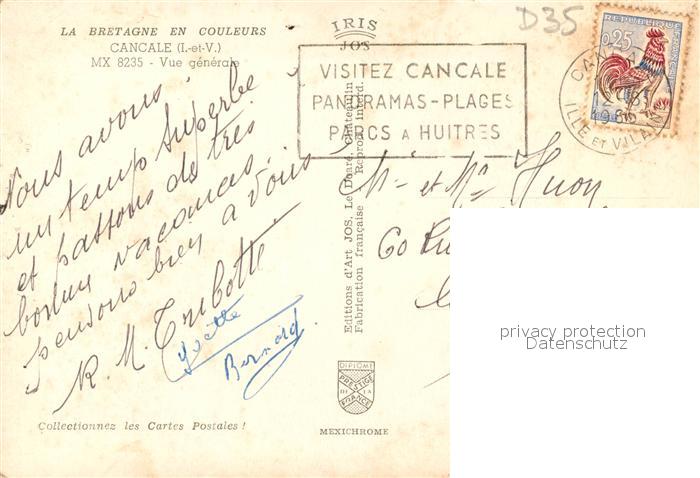 LA BRETAGNE EN COULEURS
CANCALE (I.-et-V.)
MX 8235 - Vue générale
IRIS
JOS
D35
REPUBLIQUE
0,25
VISITEZ CANCALE
PANORAMAS-PLAGES
PARCS A HUITRES
ILLE ET VILAINE
Nous avons
un temps superbe
et passons de très
bonnes vacances.
pensons bien a vous
R. M. Tribotté
Yvette
Bernard.
Mr et Me Huon
60
Editions d'Art JOS, Le Doaré, Chateaulin
Fabrication française Reprod. interd.
DIPLOME
PRESTIGE
DE LA
FRANCE
MEXICHROME
Collectionnez les Cartes Postales !
privacy protection
Datenschutz